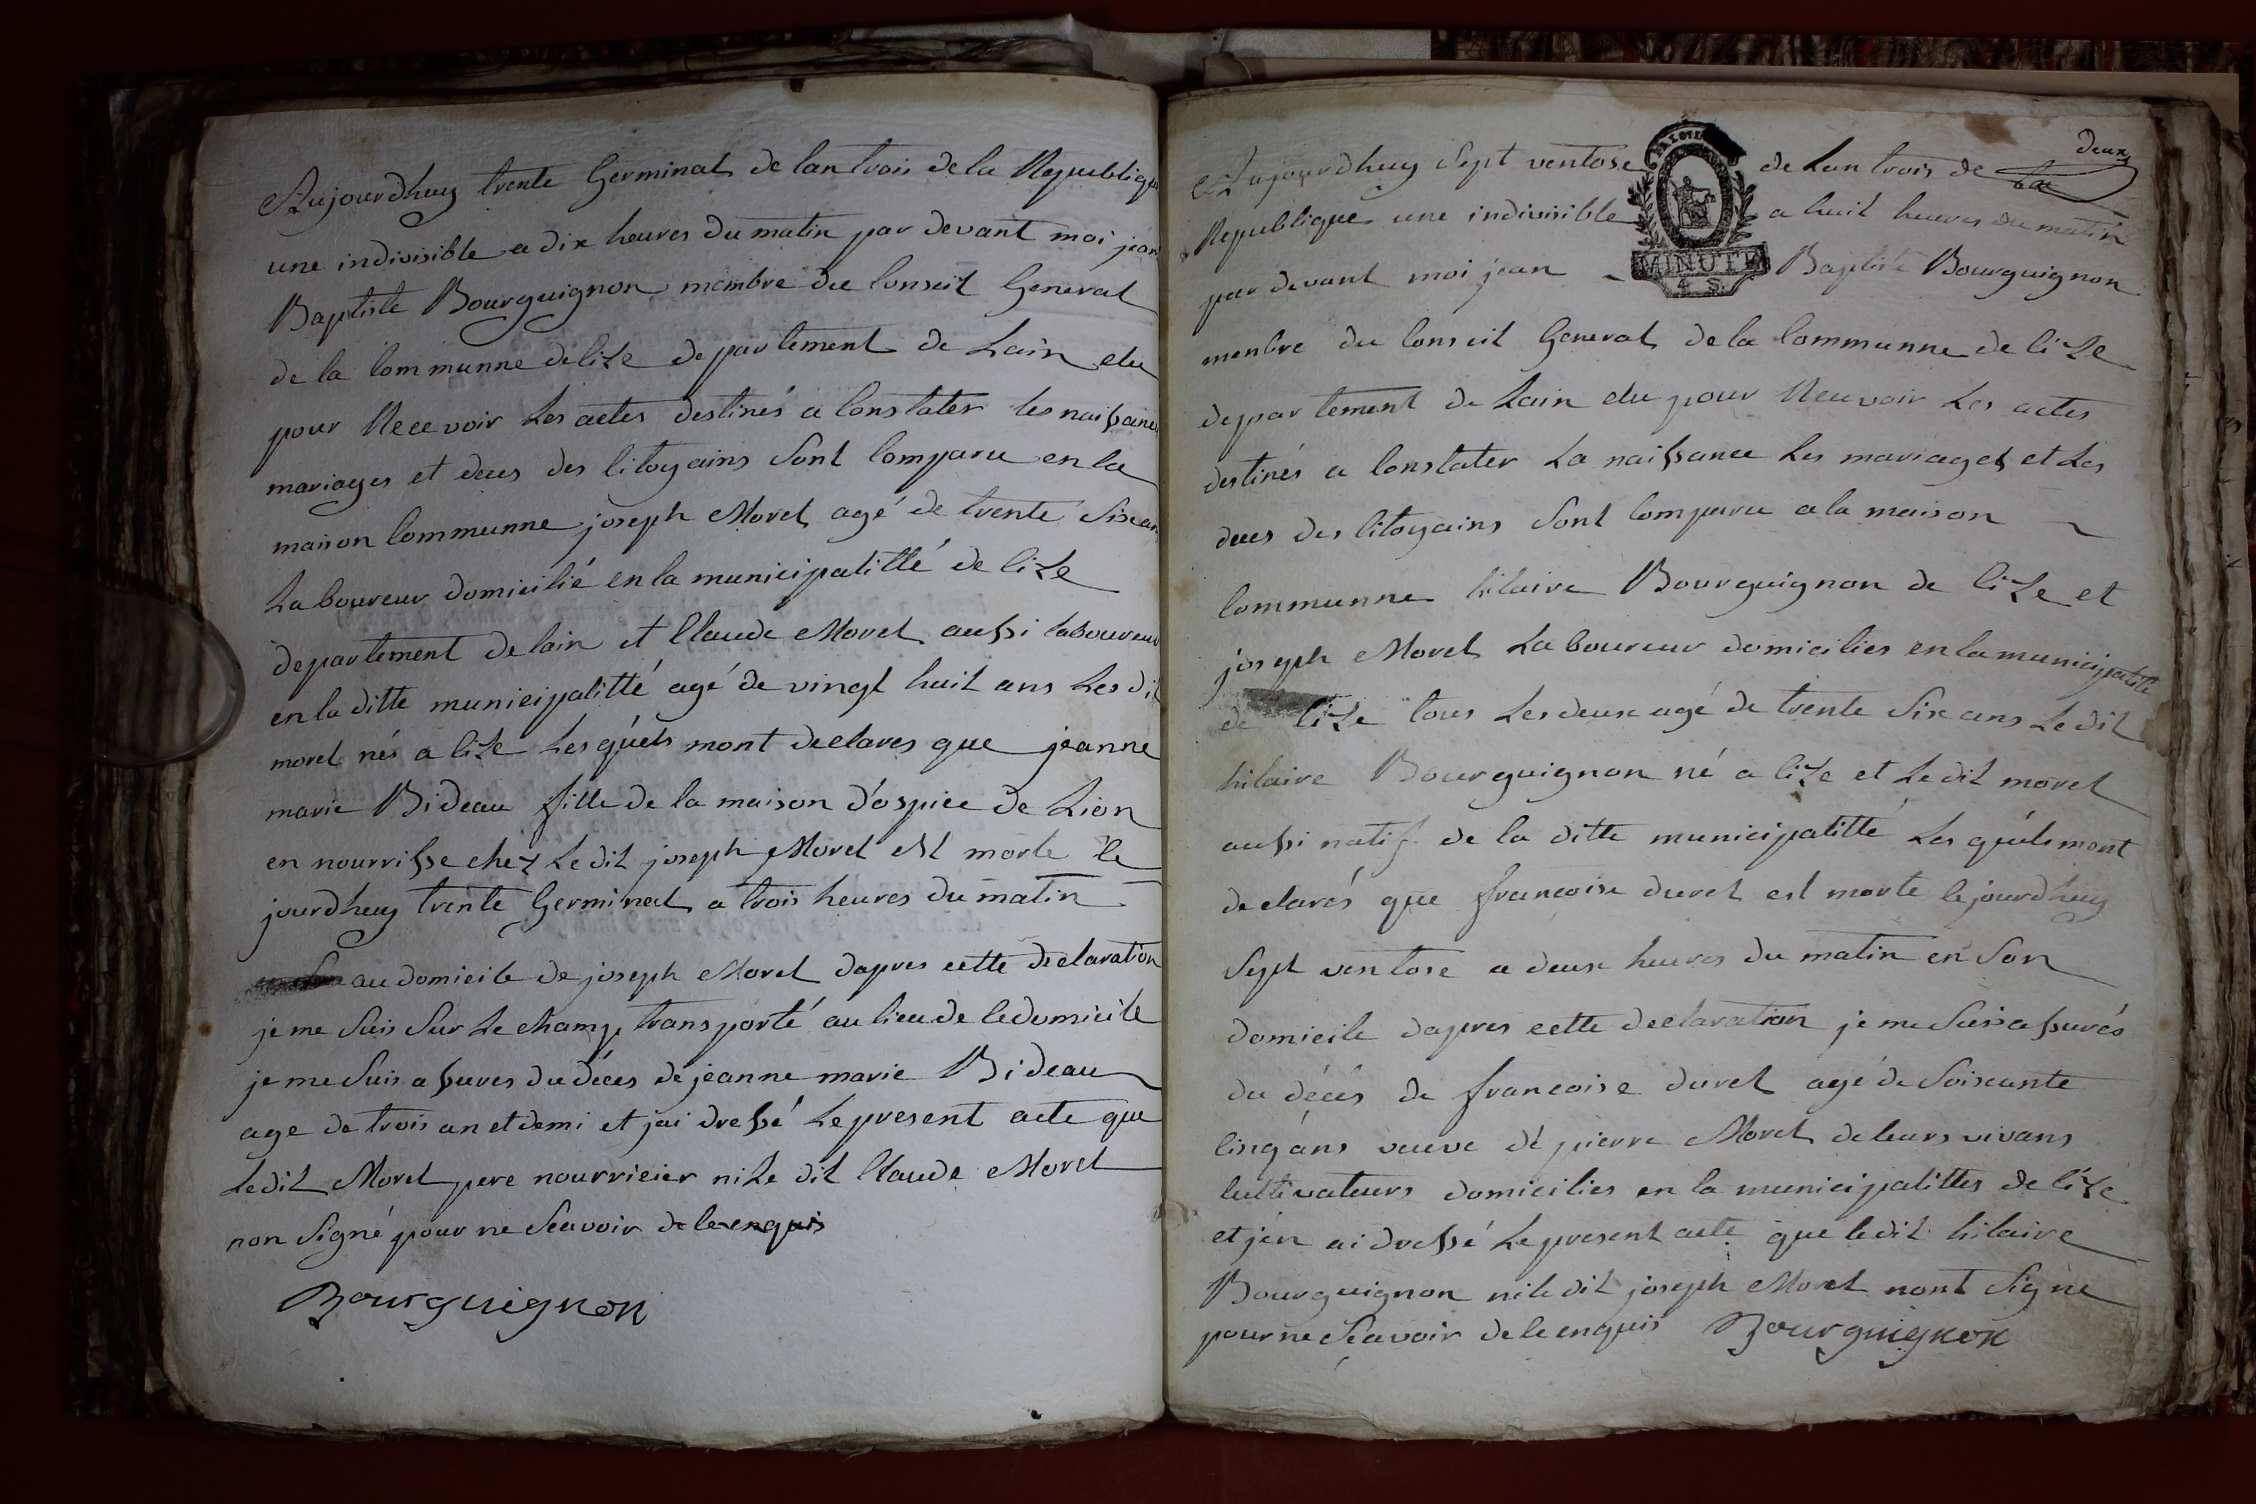 Aujourdhuy trente Germinal de lan trois de la Republique
une indivisible a dix heures du matin par devant moi jean
Baptiste Bourguignon membre du Conseil General
de la Communne de lize departement de Lain elu
pour Recevoir Les actes destinés a Constater les naissances
mariages et deces des Citoyains Sont Comparu en la
maison Communne joseph Morel agé de trente Six ans
Laboureur domicilié en la municipalitté de Cize
departement de lain et Claude Morel aussi laboureur
en la ditte municipalitté agé de vingt huit ans Les dit
morel nés a Cize Les quéls mont declares que jeanne
marie Bideau fille de la maison d'ospice de Lion
en nourrisse chez Le dit joseph Morel est morte Ce
jourdhuy trente Germinal a trois heures du matin
au domicile de joseph Morel dapres cette declaration
je me Suis Sur Le champ transporté au lieu de Ce domicile
je me Suis assures du déces de jeanne marie Bideau
age de trois an et demi et jai dressé Le present acte que
Le dit Morel pere nourricier ni Le dit Claude Morel
non Signé pour ne Scavoir de ce enquis
Bourguignon
deux
Aujourdhuy Sept ventose de Lan trois de la
Republique une indivisible a huit heures du matin
par devant moi jean Baptiste Bourguignon
MINUTE
4 S.
menbre du Conseil General de la Communne de Cize
departement de Lain elu pour Recevoir Les actes
destinés a Constater La naissance Les mariages et Les
deces des Citoyains Sont Comparu a la maison
Communne hilaire Bourguignon de Cize et
joseph Morel Laboureur domicilies en la municipalité
de Cize tous Les deux agé de trente Six ans Le dit
hilaire Bourguignon né a Cize et Le dit morel
aussi natif de la ditte municipalitté Les quéls mont
declarés que francoise durel est morte Cejourdhuy
Sept ventose a deux heures du matin en Son
domicile dapres cette declaration je me Suis assurés
du décés de francoise durel agé de Soixante
Cinq ans veuve de pierre Morel de leurs vivans
Cultivateurs domicilies en la municipalittes de Cize
et jen ai dressé Le present acte que ledit hilaire
Bourguignon ni le dit joseph Morel nont Signe
pour ne Scavoir de ce enquis Bourguignon